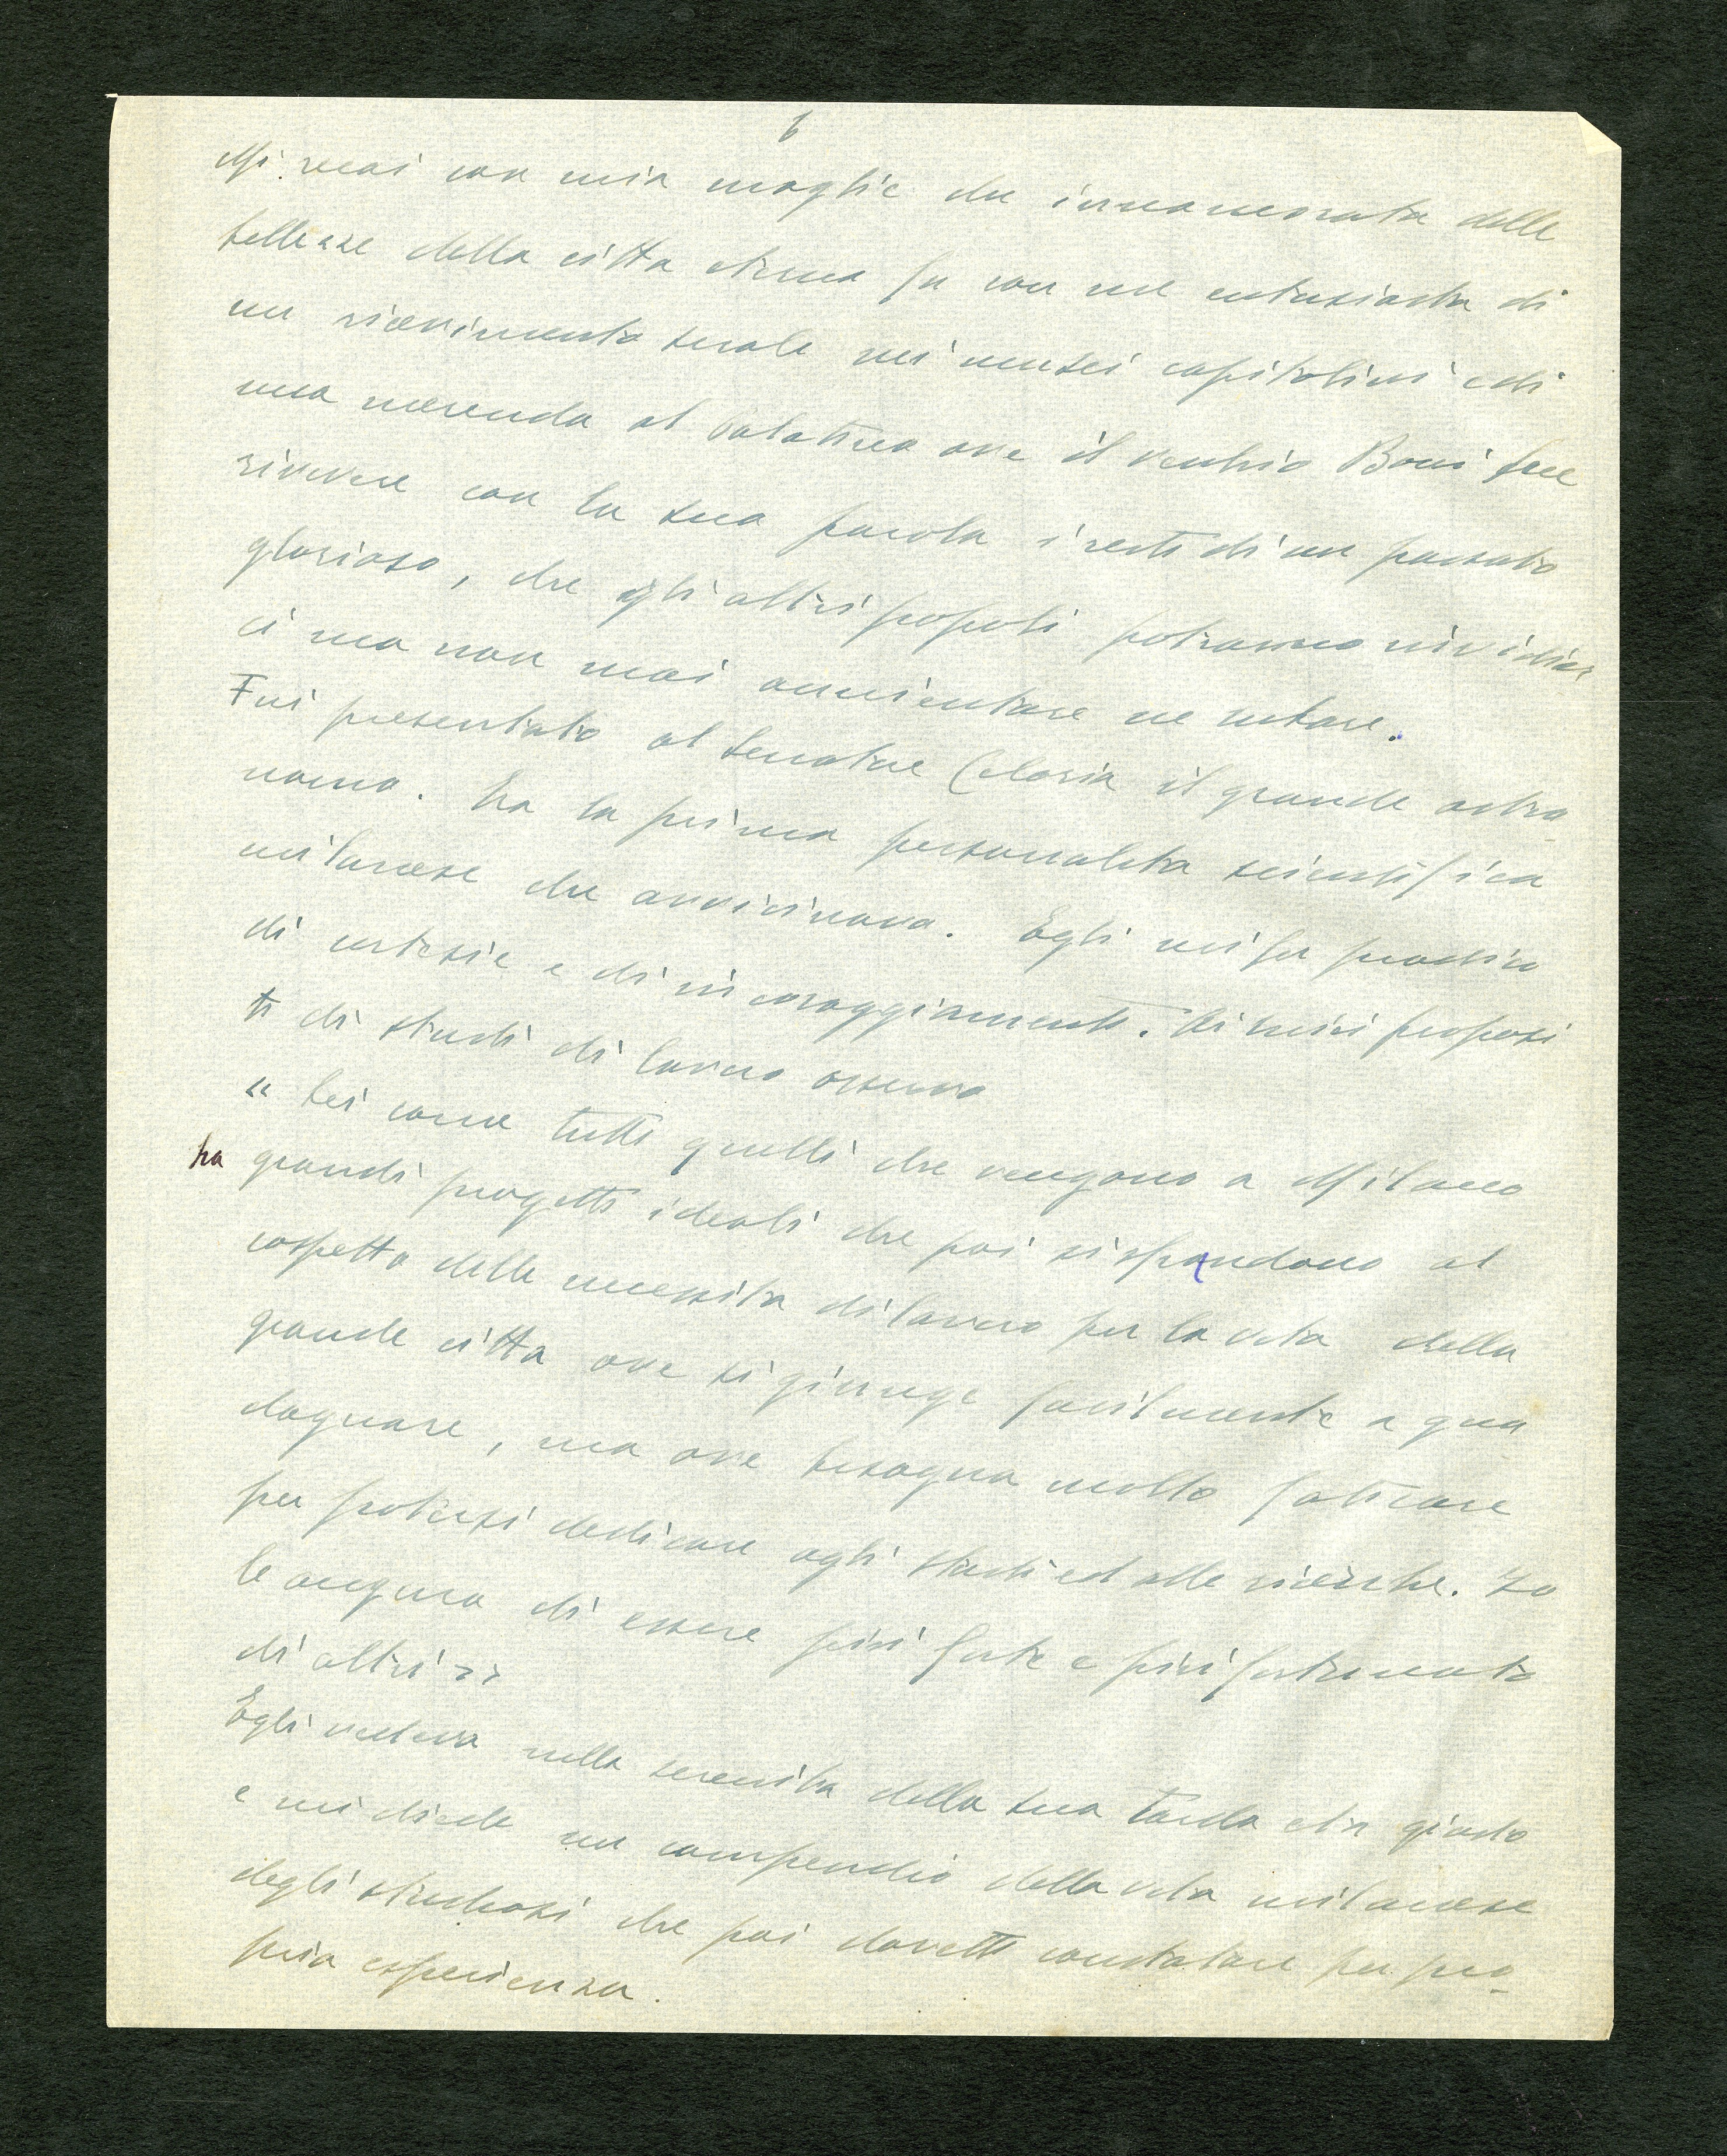 6
Mi recai con mia moglie che innamorata delle
bellezze della citta eterna fu con me entusiasta di
un ricevimento serale nei musei capitolini e di
una merenda al Palatino ove il vecchio Boni fece
rivivere con la sua parola i resti di un passato
glorioso, che gli altri popoli potranno invidiar
ci ma non mai annientare ne rubare.
Fui presentato al senatore Celoria il grande astro-
nomo. Era la prima personalita scientifica
milanese che avvicinavo. Egli mi fu prodigo
di cortesie e di incoraggiamenti. Ai miei proposi
ti di studi di lavoro osservo
" Lei come tutti quelli che vengono a Milano
ha grandi progetti ideali che poi si spandono al
cospetto delle necessita di lavoro per la vita della
grande citta ove si giunge facilmente a gua
dagnare, ma ove bisogna molto faticare
per potersi dedicare agli studi ed alle ricerche. Io
le auguro di essere piu forte e piu fortunato
di altri "
Egli vedeva nella serenita della sua tarda eta giusto
e mi diede un compendio della vita milanese
degli studiosi che poi dovetti constatare per pro-
pria esperienza.